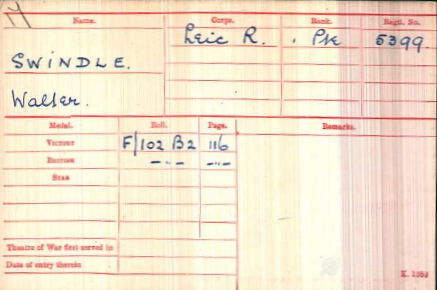 Name. Corps. Rank. Regtl. No.
SWINDLE. Leic R. . Pte 5399
Walter.
Medal. Roll. Page. Remarks.
VICTORY F/102 B2 116
BRITISH —"— —"—
STAR
Theatre of War first served in
Date of entry therein